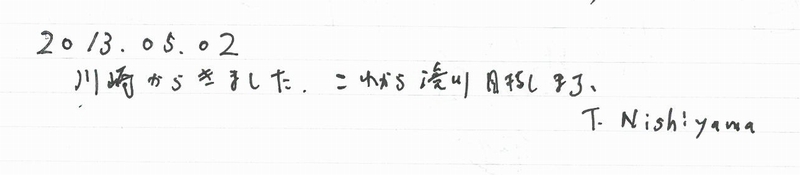 2013.05.02
川崎からきました. これから滝川目指します、
T. Nishiyama